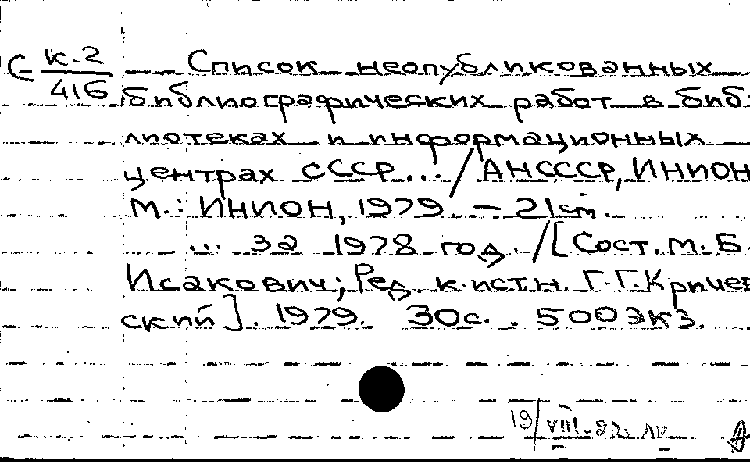 С-к.2/416
Список неопубликованных
библиографических работ в биб-
лиотеках и информационных
центрах СССР... / АН СССР, ИНИОН
М.: ИНИОН, 1979. – 21 см.
... за 1978 год. / [Сост. М. Б.
Исакович; Ред. к. ист. н. Г. Г. Кричев
ский]. 1979. 30 с. . 500 экз.
19/VIII-82.